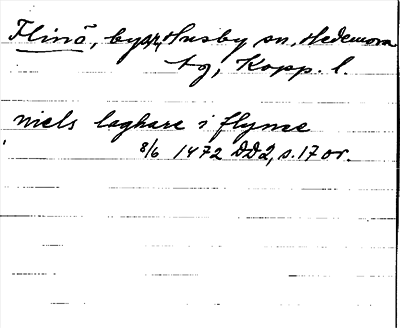 Flinå, by, Husby sn, Hedemora
tg, Kopp. l.
niels laghare i flyne
8/6 1472 DD2, s. 17 or.